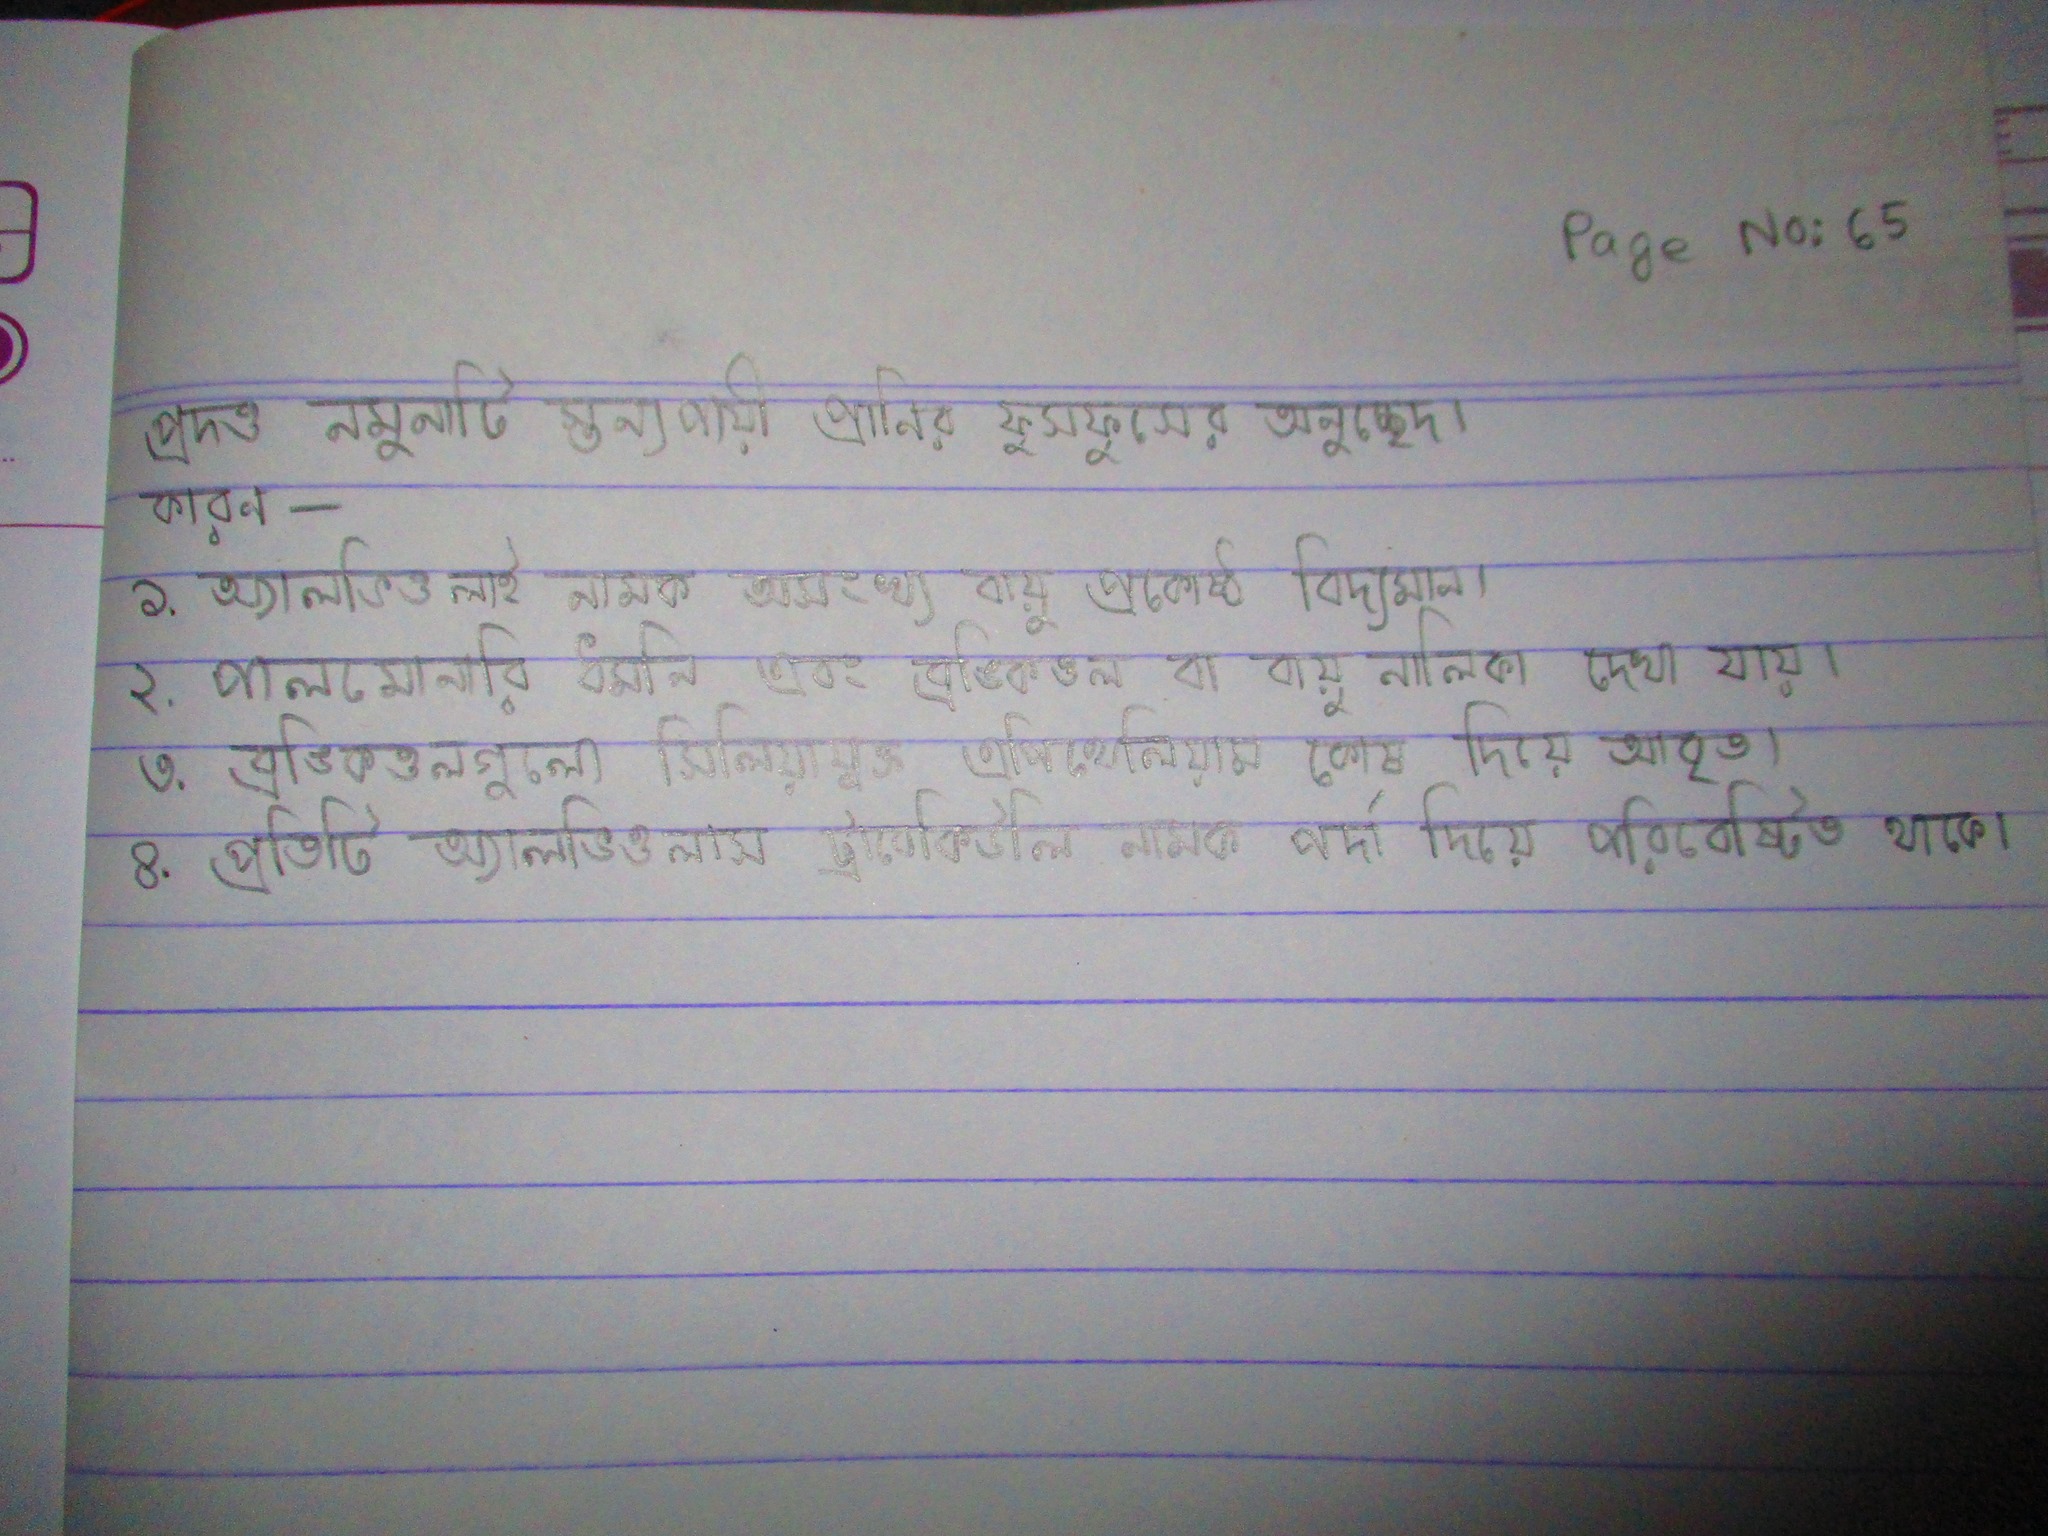 Page No: 65
প্রদত্ত নমুনাটি স্তন্যপায়ী প্রানির ফুসফুসের অনুচ্ছেদ।
কারন —
১. অ্যালভিওলাই নামক অসংখ্য বায়ু প্রকোষ্ঠ বিদ্যমান।
২. পালমোনারি ধমনি এবং ব্রঙ্কিওল বা বায়ু নালিকা দেখা যায়।
৩. ব্রঙ্কিওলগুলো সিলিয়াযুক্ত এপিথেলিয়াম কোষ দিয়ে আবৃত।
৪. প্রতিটি অ্যালভিওলাস ট্রাবেকিউলি নামক পর্দা দিয়ে পরিবেষ্টিত থাকে।